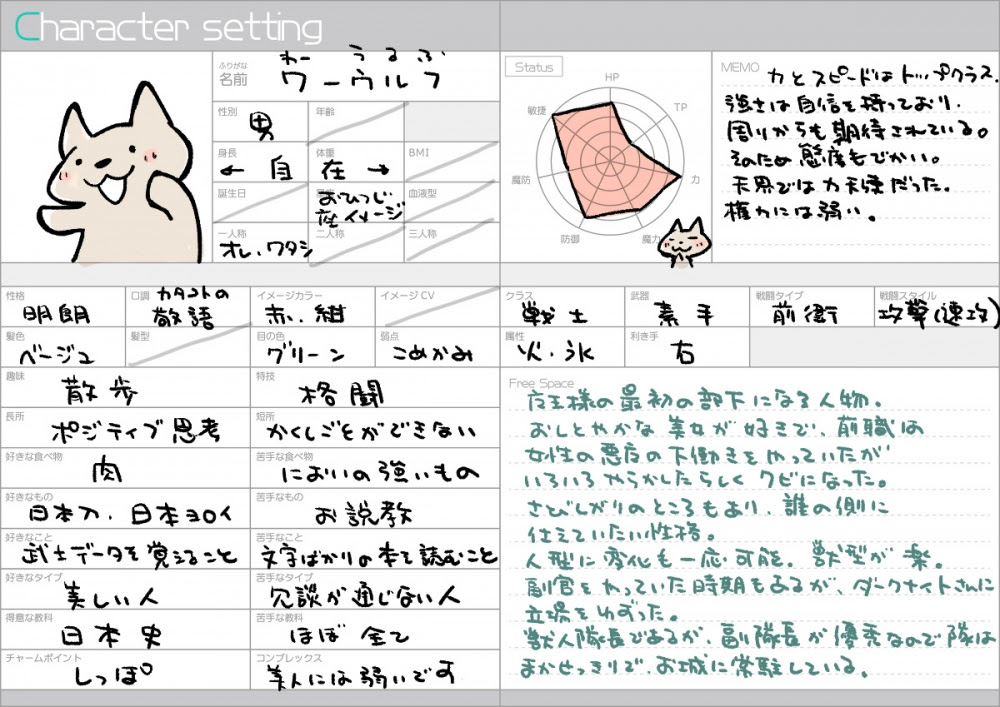 Character setting
ふりがな わー うるふ
名前 ワーウルフ
性別 男 年齢
身長 ← 自 体重 在 → BMI
誕生日 星座 おひつじ座イメージ 血液型
一人称 オレ、ワタシ 二人称 三人称
性格 明朗 口調 カタコトの敬語 イメージカラー 赤、紺 イメージCV
髪色 ベージュ 髪型 目の色 グリーン 弱点 こめかみ
趣味 散歩 特技 格闘
長所 ポジティブ思考 短所 かくしごとができない
好きな食べ物 肉 苦手な食べ物 においの強いもの
好きなもの 日本刀、日本ヨロイ 苦手なもの お説教
好きなこと 武士データを覚えること 苦手なこと 文字ばかりの本を読むこと
好きなタイプ 美しい人 苦手なタイプ 冗談が通じない人
得意な教科 日本史 苦手な教科 ほぼ全て
チャームポイント しっぽ コンプレックス 美人には弱いです
Status
HP
TP
力
魔力
防御
魔防
敏捷
MEMO 力とスピードはトップクラス。
強さは自信を持っており、
周りからも期待されている。
そのため態度もでかい。
天界では力天使だった。
権力には弱い。
クラス 戦士 武器 素手 戦闘タイプ 前衛 戦闘スタイル 攻撃(速攻)
属性 火・氷 利き手 右
Free Space
夜王様の最初の部下になる人物。
おしとやかな美女が好きで、前職は
女性の悪魔の下働きをやっていたが
いろいろやらかしたらしくクビになった。
さびしがりのところもあり、誰の側に
仕えていたい性格。
人型に変化も一応可能。獣型が楽。
副官をやっていた時期もあるが、ダークナイトさんに
立場をゆずった。
獣人隊長であるが、副隊長が優秀なので隊は
まかせっきりで、お城に常駐している。